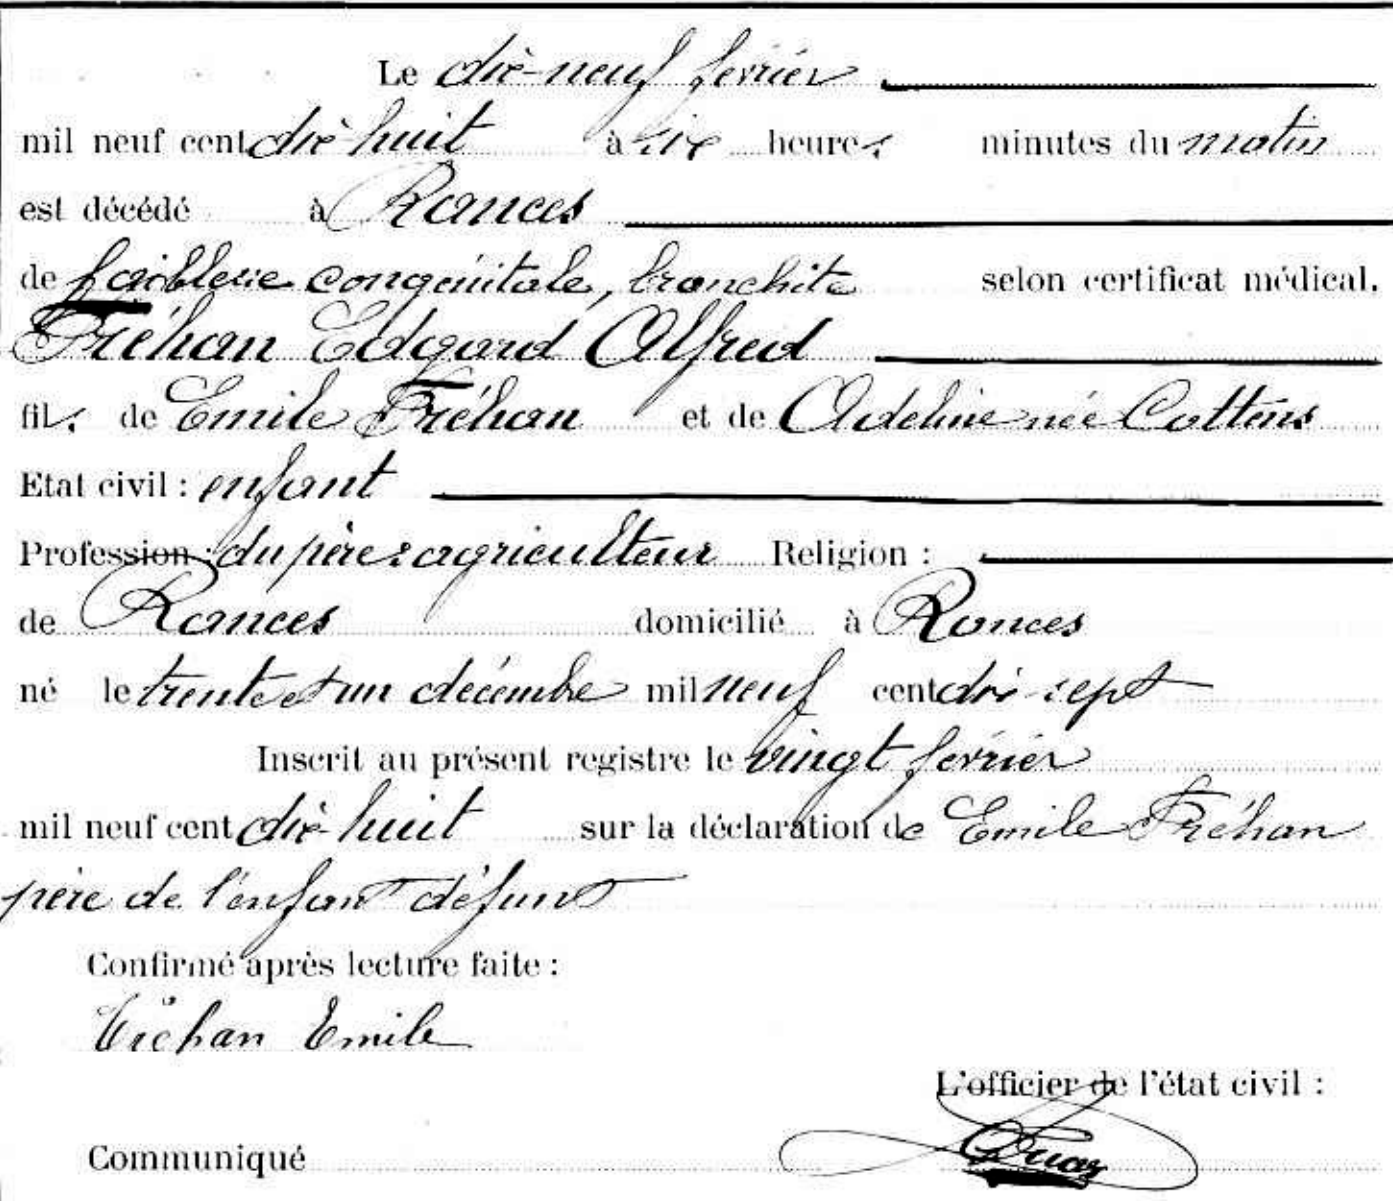 Le dix-neuf février
mil neuf cent dix-huit à six heures minutes du matin
est décédé à Rances
de faiblesse congénitale, bronchite selon certificat médical,
Tréhan Edgard Alfred
fils de Emile Tréhan et de Adeline née Cottens
Etat civil : enfant
Profession : du père : agriculteur Religion :
de Rances domicilié à Rances
né le trente et un décembre mil neuf cent dix-sept
Inscrit au présent registre le vingt février
mil neuf cent dix-huit sur la déclaration de Emile Tréhan
père de l'enfant défunt
Confirmé après lecture faite :
Tréhan Emile
L'officier de l'état civil :
Communiqué